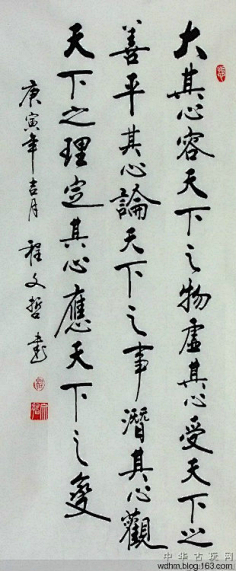 大其心容天下之物虚其心受天下之
善平其心論天下之事潛其心觀
天下之理定其心應天下之變
庚寅年吉月程文哲書
中华古玩网
wdhm.blog.163.com